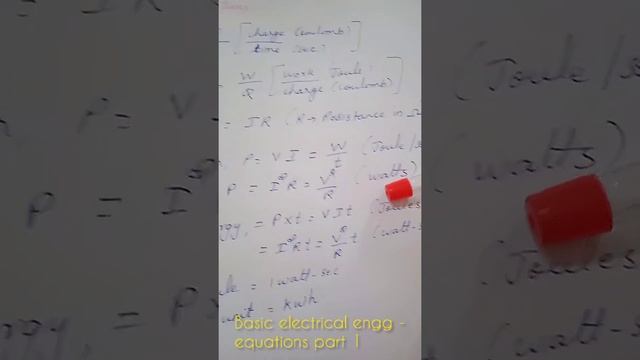 [charge (coulomb)
time (sec)]
= W/R [work Joule
charge (coulomb)]
= IR (R → Resistance in Ω
P = VI = W/t (Joule/s
P = I²R = V²/R (watts)
= P x t = VIt (Joules
= I²Rt = V²/R t (watt-s
= 1 watt-sec
= kwh
Basic electrical engg -
equations part 1